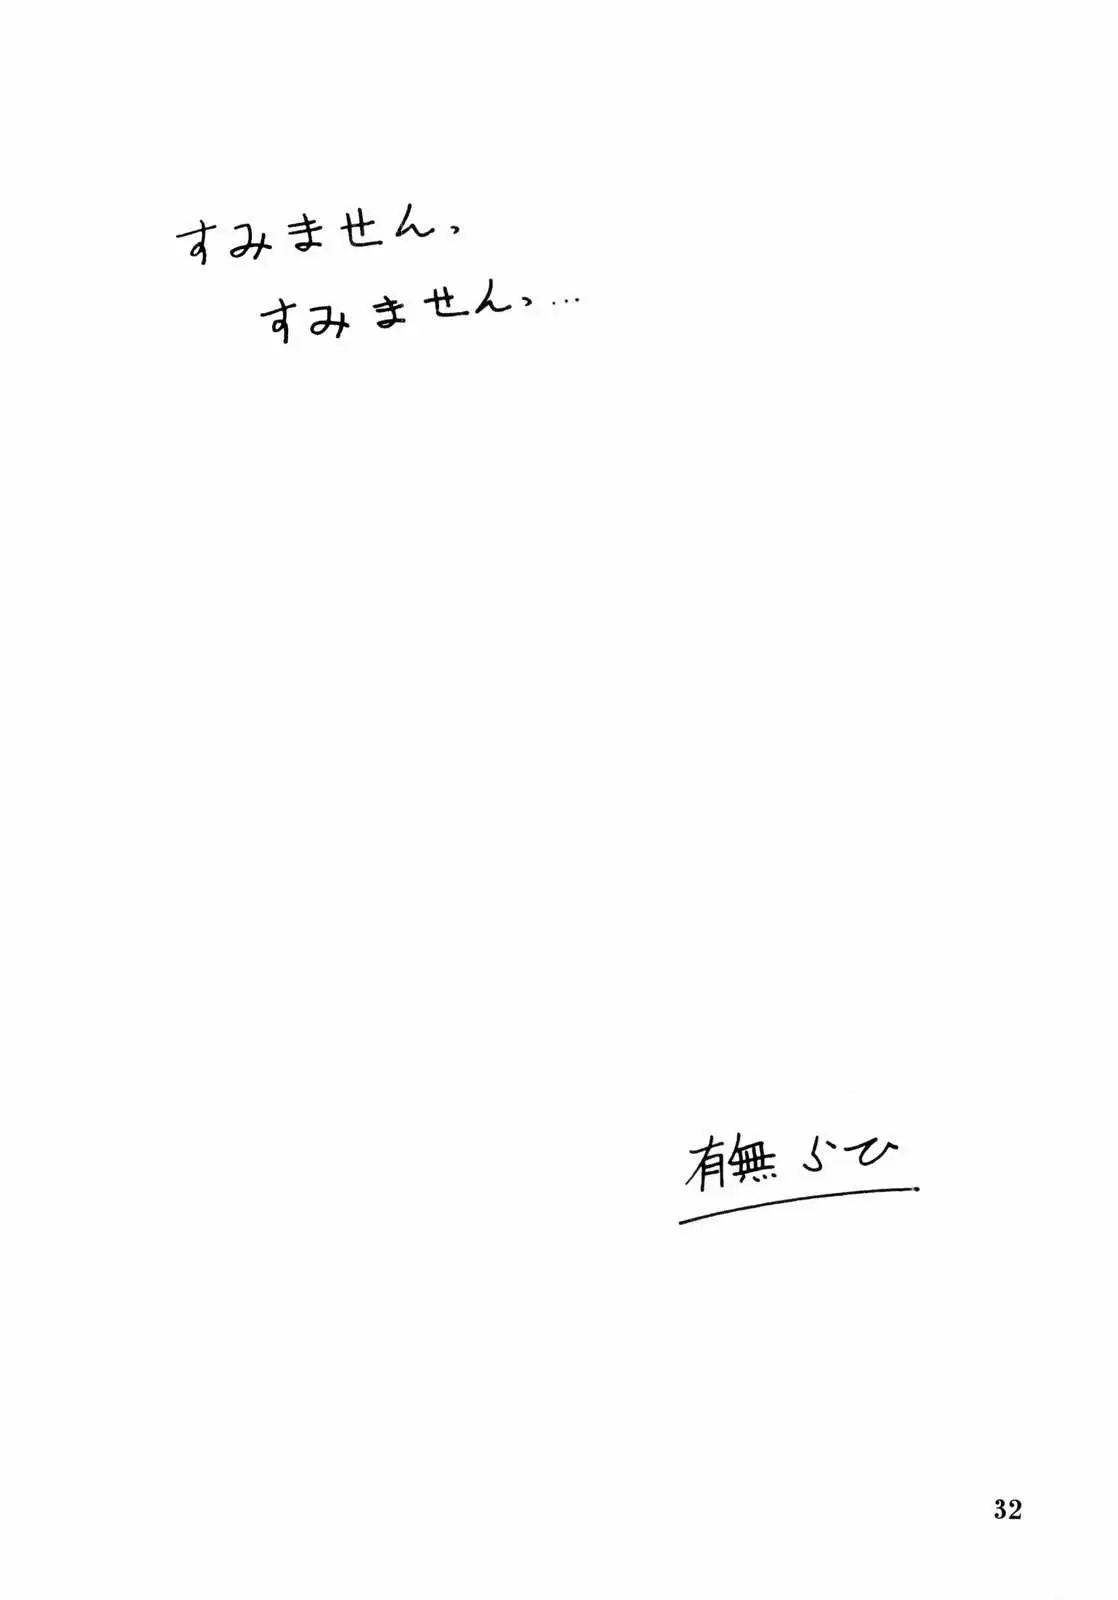 すみません、
すみませんっ…
有無らひ
32